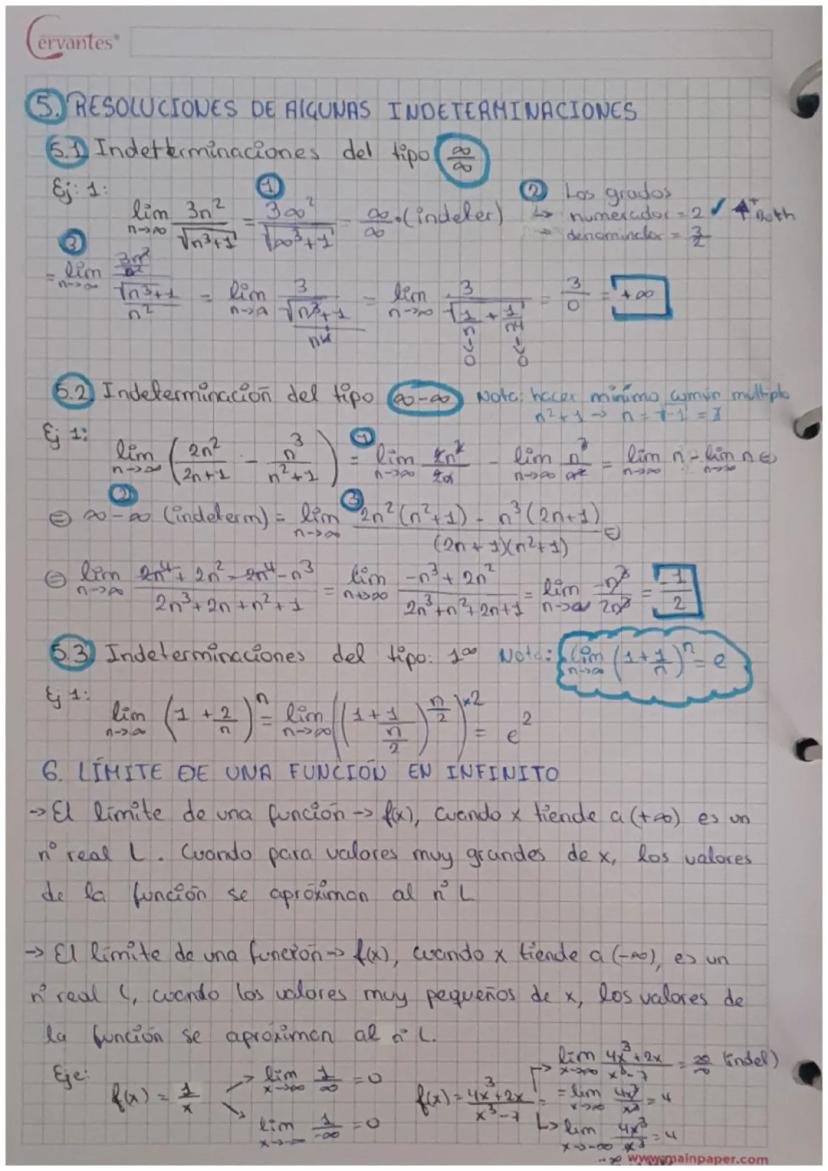 Cervantes®
5. RESOLUCIONES DE ALGUNAS INDETERMINACIONES
5.1 Indeterminaciones del tipo ∞/∞
Ej: 1:
lim n→∞ 3n²/√(n³+1) = ① 3∞²/√(∞³+1) = ∞/∞ (indeter)
② Los grados
↳ numerador = 2 ✓
→ denominador = 3/2
③ = lim n→∞ (3n²/n²)/(√(n³+1)/n²) = lim n→∞ 3/√((n³+1)/n⁴) = lim n→∞ 3/√(1/n + 1/n⁴) = 3/0 = +∞
↓ 0 ↓ 0
5.2 Indeterminación del tipo ∞-∞ Nota: hacer mínimo común multiplo
Ej 1:
lim n→∞ (2n²/(2n+1) - n³/(n²+1)) = ① lim n→∞ 2n²/2n - lim n→∞ n³/n² = lim n→∞ n - lim n→∞ n ⊜
⊜ ② ∞-∞ (indeterm) = ③ lim n→∞ (2n²(n²+1) - n³(2n+1))/((2n+1)(n²+1)) ⊜
⊜ lim n→∞ (2n⁴+2n²-2n⁴-n³)/(2n³+2n+n²+1) = lim n→∞ (-n³+2n²)/(2n³+n²+2n+1) = lim n→∞ -n³/2n³ = -1/2
5.3 Indeterminaciones del tipo: 1^∞ Nota: lim n→∞ (1+1/n)^n = e
Ej 1:
lim n→∞ (1+2/n)^n = lim n→∞ ((1+1/(n/2))^(n/2))^×2 = e²
6. LÍMITE DE UNA FUNCIÓN EN INFINITO
→ El límite de una función → f(x), cuando x tiende a (+∞) es un
nº real L. Cuando para valores muy grandes de x, los valores
de la función se apróximan al nº L
→ El límite de una función → f(x), cuando x tiende a (-∞), es un
nº real L, cuando los valores muy pequeños de x, los valores de
la función se apróximan al nº L.
Eje:
f(x) = 1/x
→ lim x→∞ 1/∞ = 0
→ lim x→-∞ 1/-∞ = 0
f(x) = (4x³+2x)/(x³-7) =
→ lim x→∞ (4x³+2x)/(x³-7) = ∞/∞ (indet)
= lim x→∞ 4x³/x³ = 4
↳ lim x→-∞ 4x³/x³ = 4
www.mainpaper.com